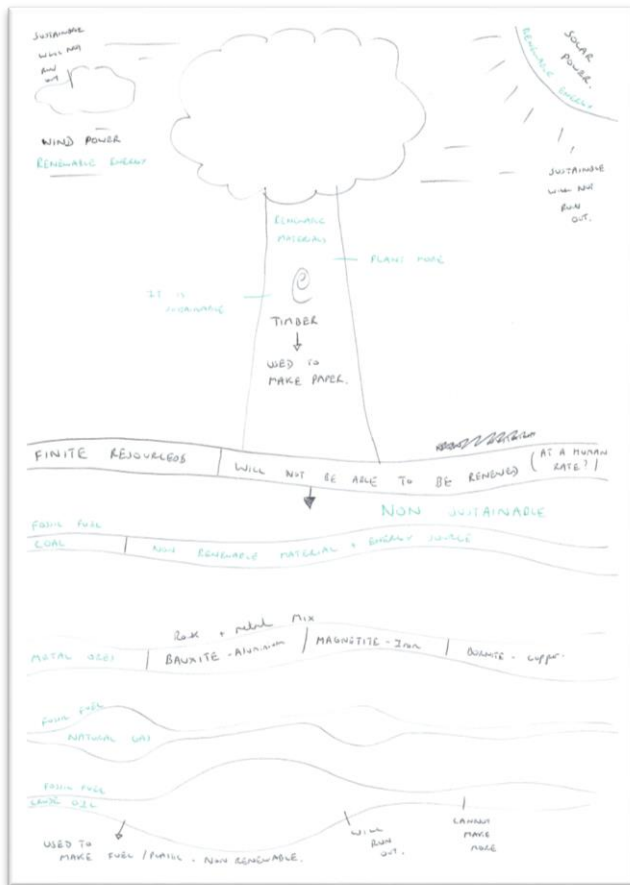 SUSTAINABLE
WILL NOT
RUN
OUT
WIND POWER
RENEWABLE ENERGY
SOLAR
POWER.
RENEWABLE ENERGY
SUSTAINABLE
WILL NOT
RUN
OUT.
RENEWABLE
MATERIALS
PLANT MORE
IT IS
SUSTAINABLE
TIMBER
USED TO
MAKE PAPER.
FINITE RESOURCES
WILL NOT BE ABLE TO BE RENEWED (AT A HUMAN
RATE?)
NON SUSTAINABLE
FOSSIL FUEL
COAL
NON RENEWABLE MATERIAL + ENERGY SOURCE
Rock + metal mix
METAL ORES
BAUXITE - Aluminium
MAGNETITE - Iron
BORNITE - copper.
FOSSIL FUEL
NATURAL GAS
FOSSIL FUEL
CRUDE OIL
USED TO
MAKE FUEL / PLASTIC - NON RENEWABLE.
WILL
RUN
OUT.
CANNOT
MAKE
MORE